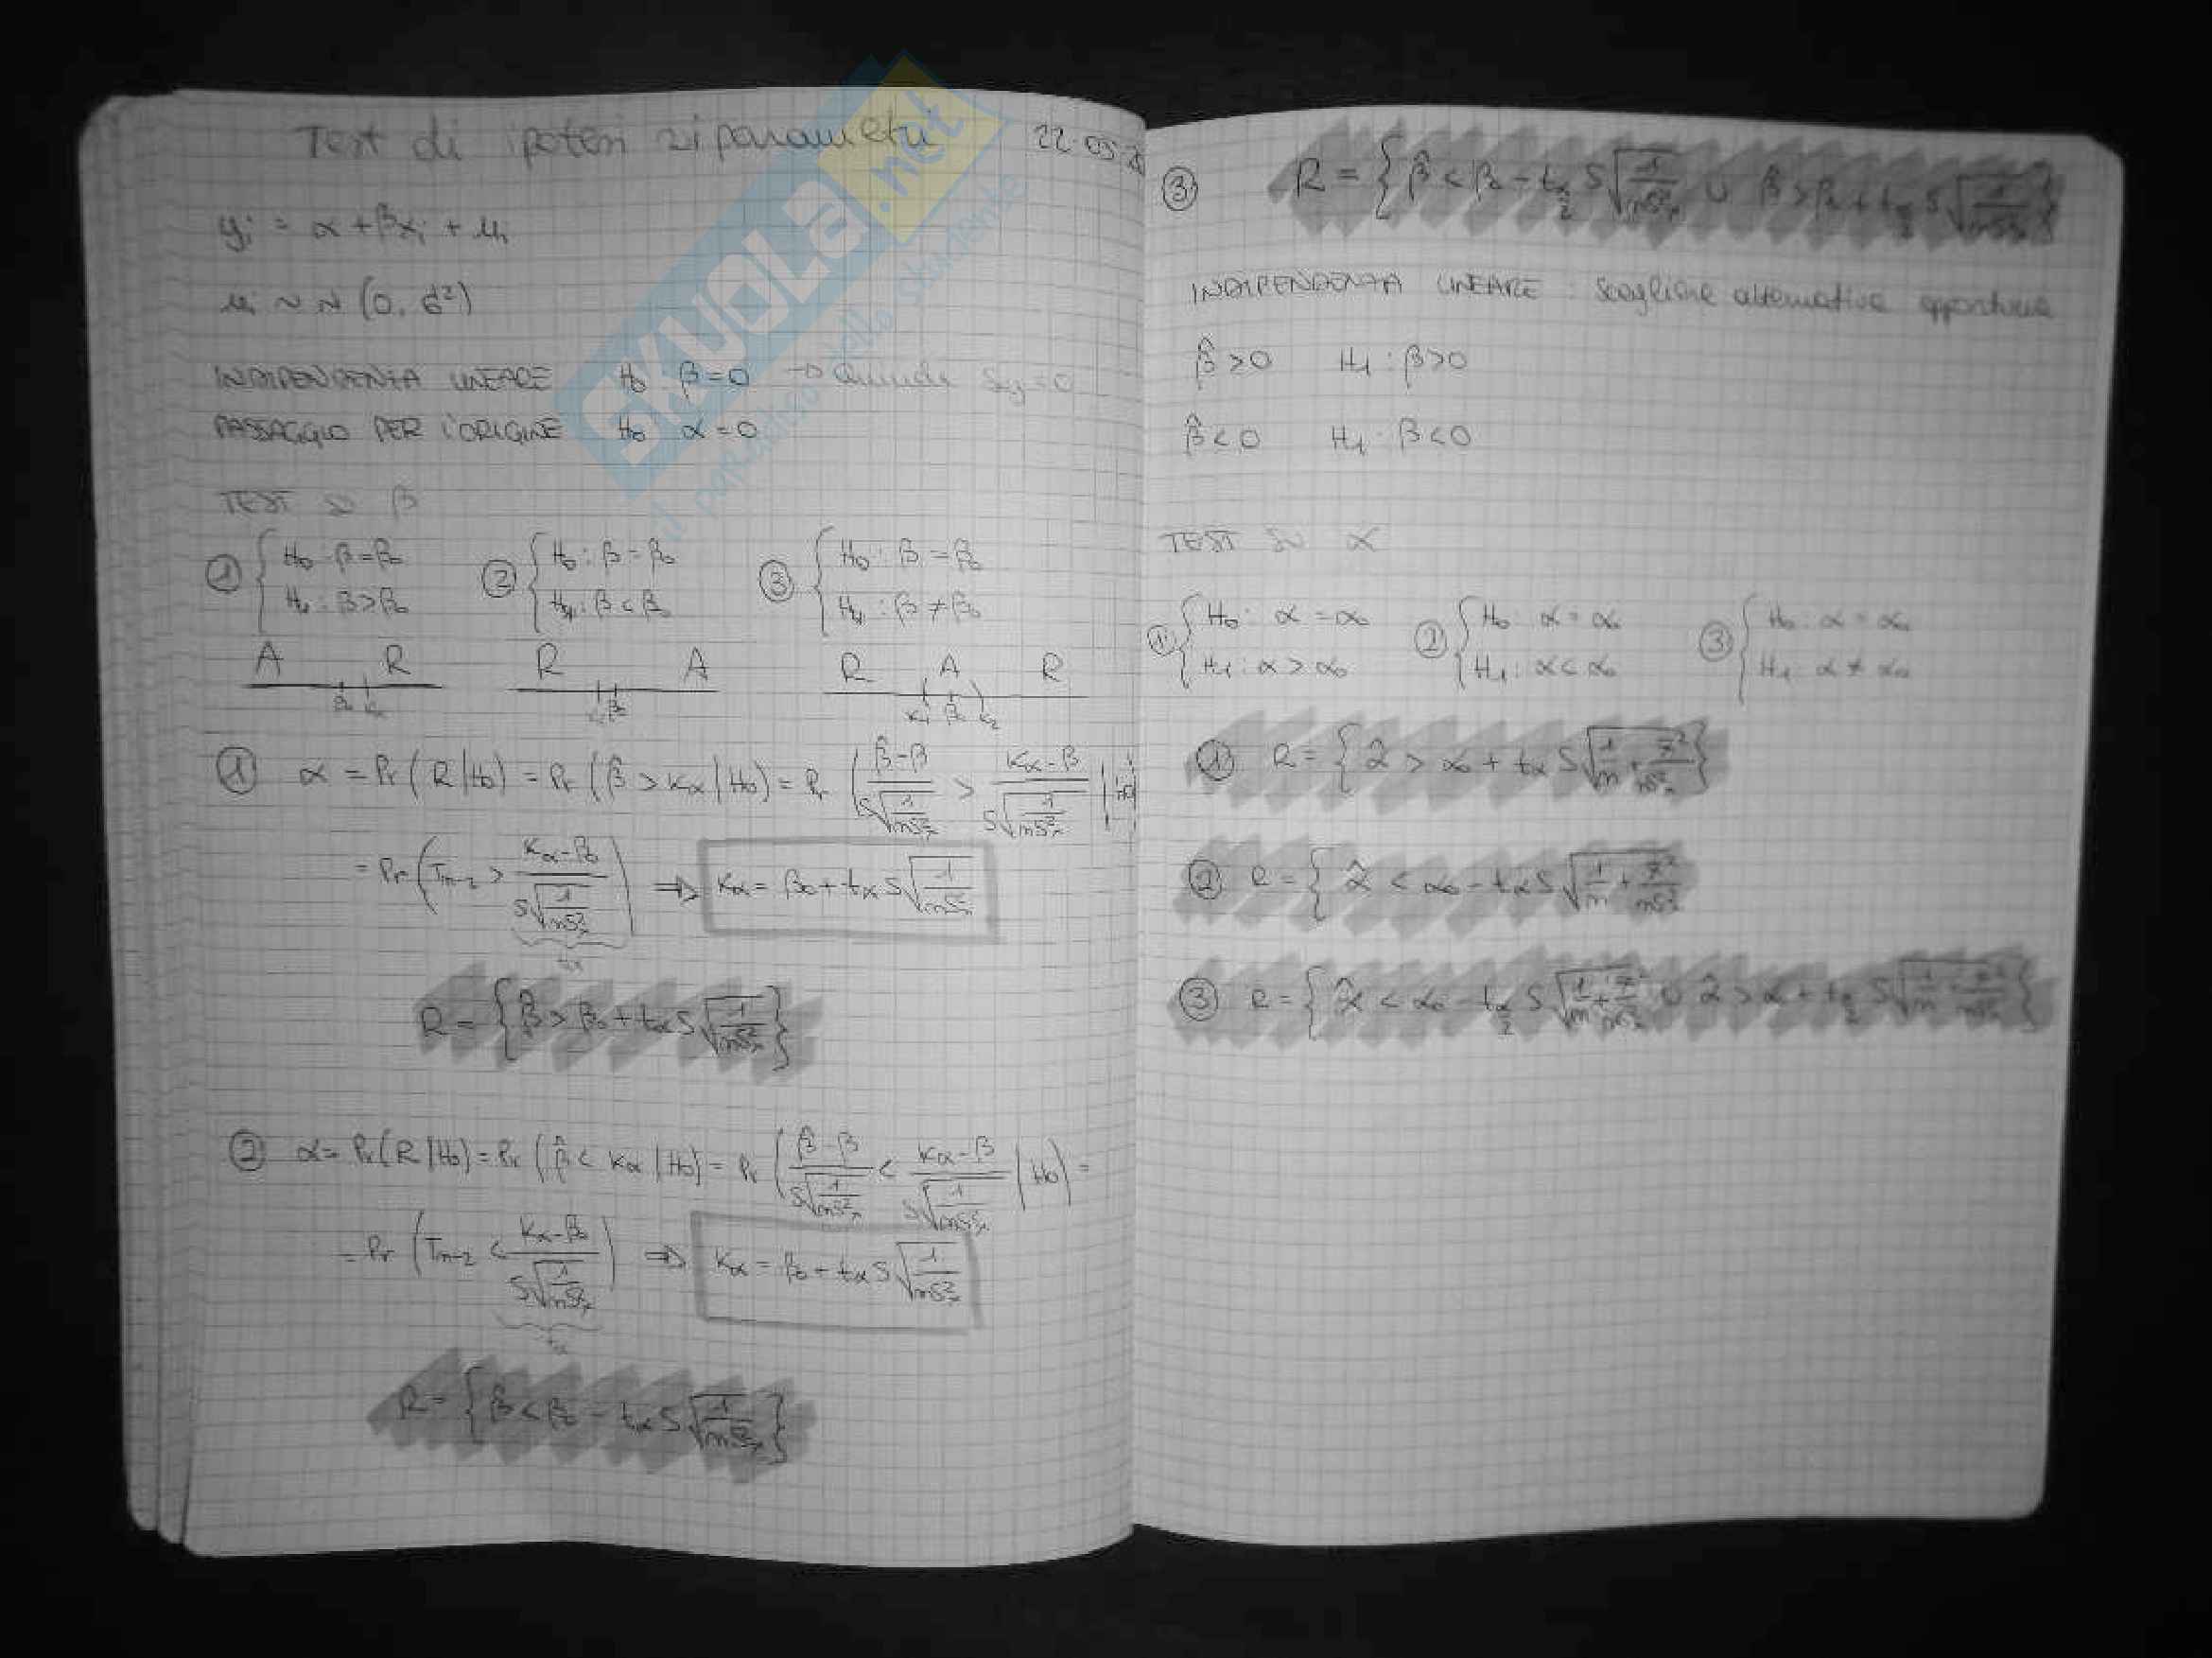 Test di ipotesi sui parametri 22.05
yi = α + βxi + ui
ui ~ N (0, σ²)
INDIPENDENZA LINEARE H0 β=0 → Quando Sxy=0
PASSAGGIO PER L'ORIGINE H0 α=0
TEST SU β
① { H0: β=β0 ② { H0: β=β0 ③ { H0: β=β0
H1: β>β0 H1: β<β0 H1: β≠β0
A R R A R A R
β0 kα kα β0 k1 β0 k2
① α = Pr (R|H0) = Pr (β̂ > kα | H0) = Pr ( (β̂-β)/(S√(1/(nS²x))) > (kα-β)/(S√(1/(nS²x))) | H0)
= Pr ( Tn-2 > (kα-β0)/(S√(1/(nS²x))) ) ⇒ kα = β0 + tα S √(1/(nS²x))
tα
R = { β̂ > β0 + tα S √(1/(nS²x)) }
② α = Pr (R|H0) = Pr (β̂ < kα | H0) = Pr ( (β̂-β)/(S√(1/(nS²x))) < (kα-β)/(S√(1/(nS²x))) | H0) =
= Pr ( Tn-2 < (kα-β0)/(S√(1/(nS²x))) ) ⇒ kα = β0 - tα S √(1/(nS²x))
tα
R = { β̂ < β0 - tα S √(1/(nS²x)) }
③ R = { β̂ < β0 - tα/2 S √(1/(nS²x)) ∪ β̂ > β0 + tα/2 S √(1/(nS²x)) }
INDIPENDENZA LINEARE: scegliere alternativa opportuna
β̂ > 0 H1: β>0
β̂ < 0 H1: β<0
TEST SU α
① { H0: α = α0 ② { H0: α = α0 ③ { H0: α = α0
H1: α > α0 H1: α < α0 H1: α ≠ α0
① R = { α̂ > α0 + tα S √(1/n + x̄²/(nS²x)) }
② R = { α̂ < α0 - tα S √(1/n + x̄²/(nS²x))
③ R = { α̂ < α0 - tα/2 S √(1/n + x̄²/(nS²x)) ∪ α̂ > α + tα/2 S √(1/n + x̄²/(nS²x)) }
SKUOLA.net
il paradiso dello studente